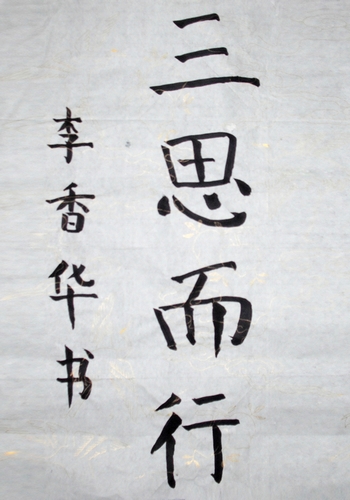 三思而行
李香华书